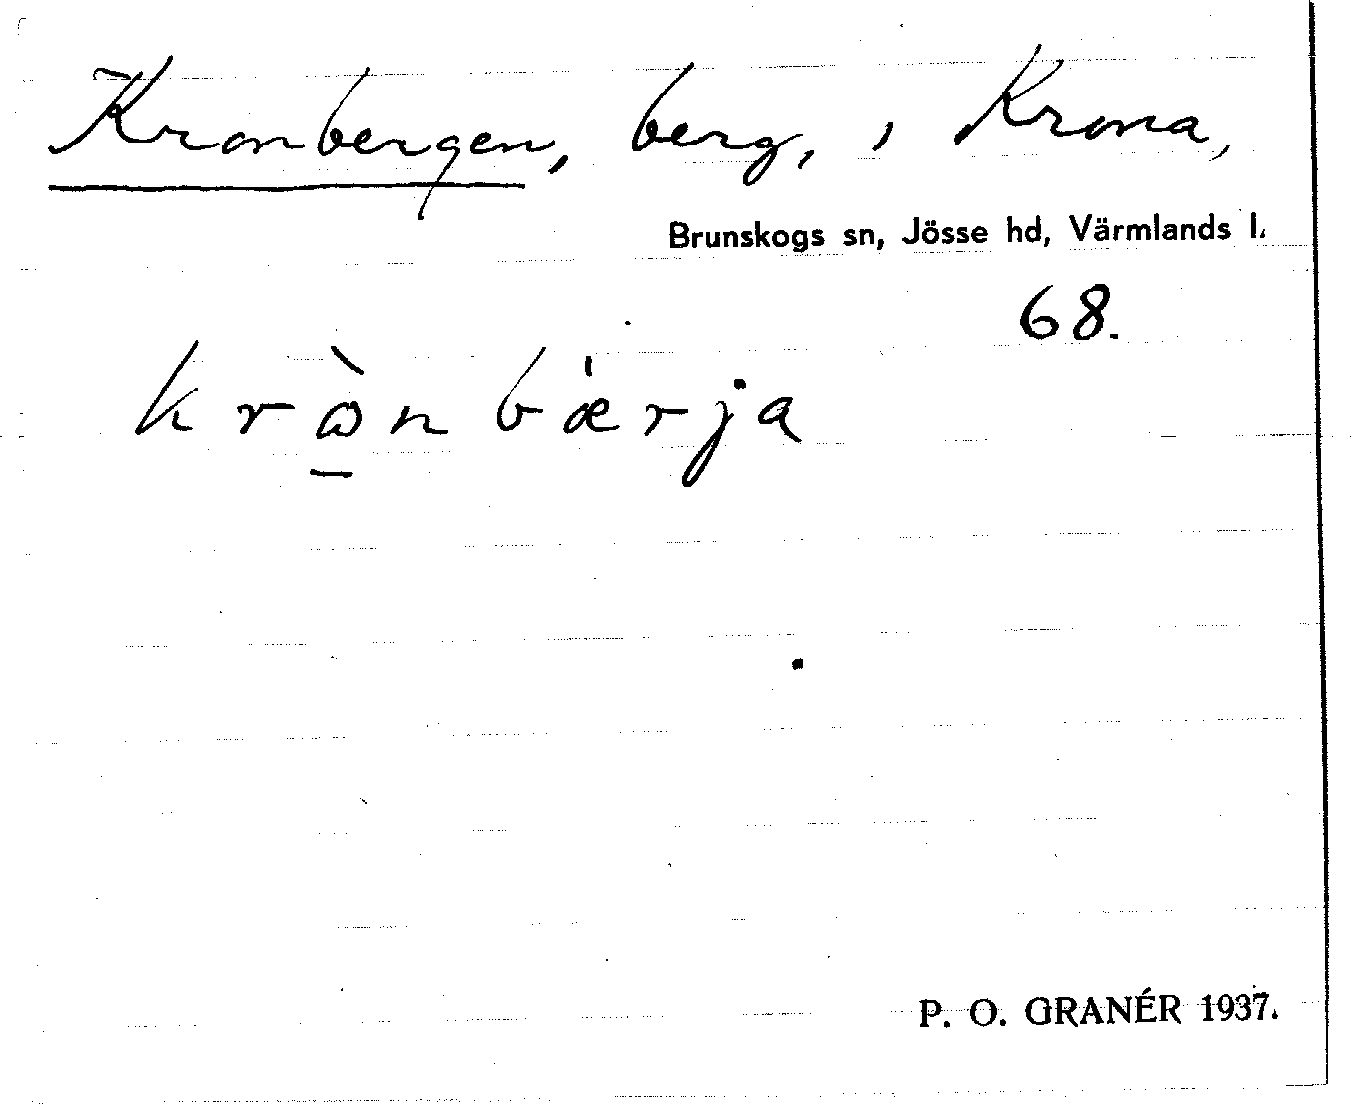 Kronbergen, berg, i Krona,
Brunskogs sn, Jösse hd, Värmlands l.
68.
krὼ̠nbǽrja
P. O. GRANÉR 1937.